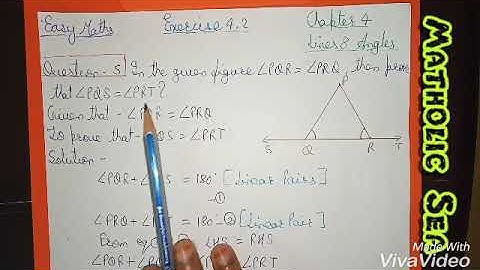 Easy Maths
Exercise 4.2
Chapter 4
Lines & Angles
Question-5 In the given figure ∠PQR = ∠PRQ, then prove
that ∠PQS = ∠PRT?
Given that - ∠ R = ∠PRQ
To prove that - QS = ∠PRT
Solution -
∠PQR + ∠ QS = 180° [Linear Pairs]
-①
∠PRQ + ∠P = 180° -② [Linear Pair]
From eq ② LHS = RHS
∠PQR + ∠PRT
P
S Q R T
MATHOLIC
Made With
VivaVideo